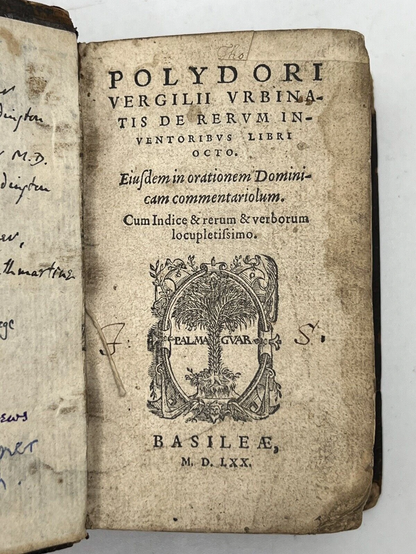 dington
M.D.
dington
Tho
POLYDORI
VERGILII VRBINA-
TIS DE RERVM IN-
VENTORIBVS LIBRI
OCTO.
Eiuſdem in orationem Domini-
cam commentariolum.
Cum Indice & rerum & verborum
locupletiſſimo.
PALMA GVAR
S.
BASILEÆ,
M. D. LXX.